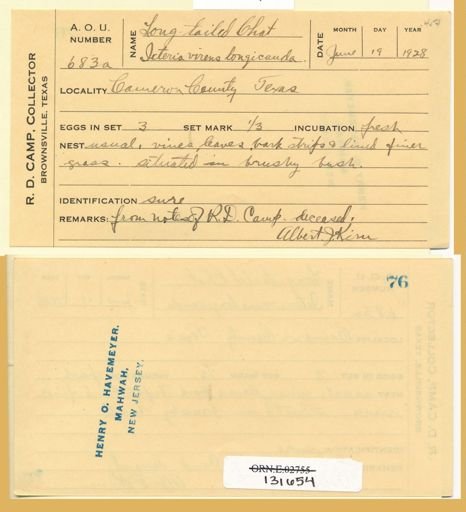 R. D. CAMP, COLLECTOR
BROWNSVILLE, TEXAS
A. O. U.
NUMBER
683a
NAME
Long-tailed Chat
Icteria virens longicauda.
DATE
MONTH DAY YEAR
June 19 1928
LOCALITY Cameron County Texas
EGGS IN SET 3 SET MARK 1/3 INCUBATION fresh
NEST usual, vines, leaves, bark strips & lined finer
grass. situated in brushy bush.
IDENTIFICATION sure
REMARKS: from notes of R.D. Camp. deceased.
Albert J. Kirn
76
HENRY O. HAVEMEYER.
MAHWAH.
NEW JERSEY.
ORN.E.02755
131654